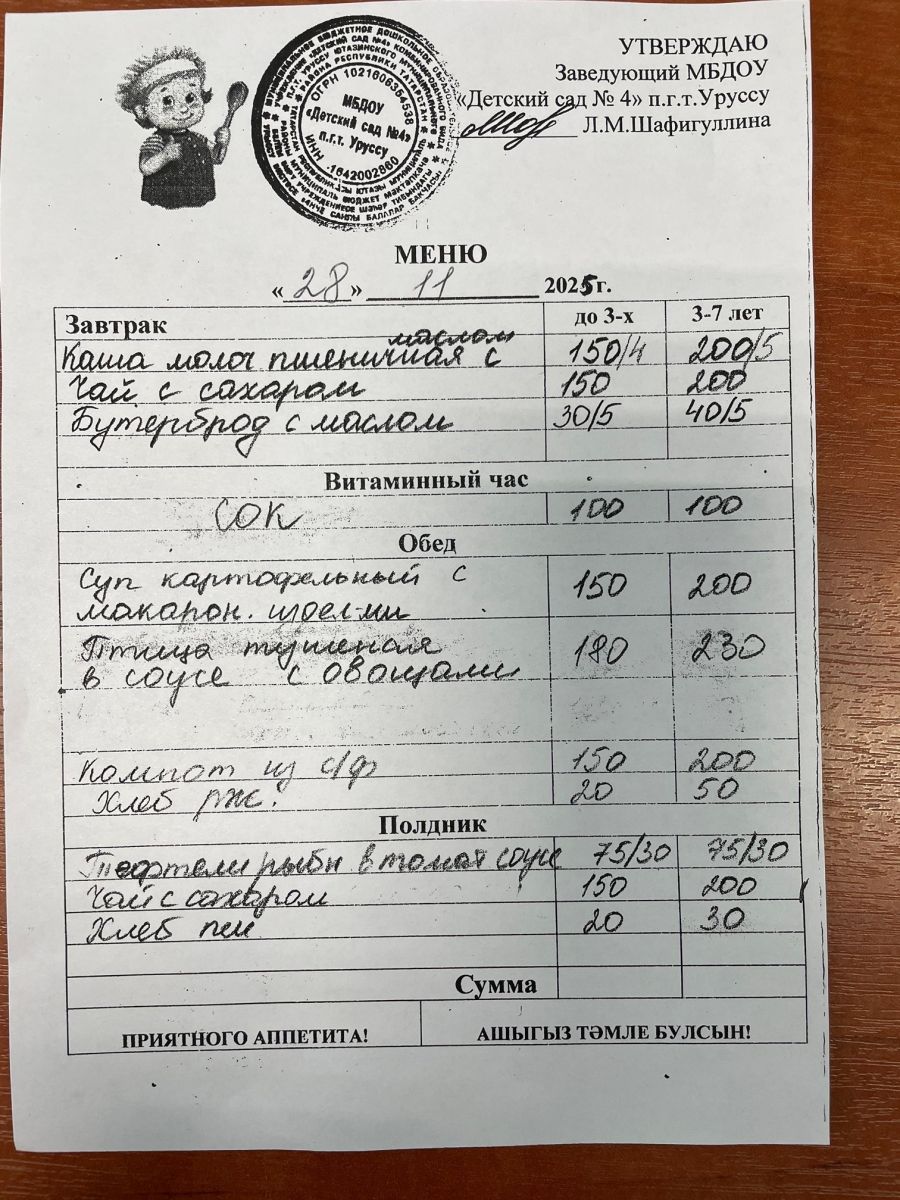 УТВЕРЖДАЮ
Заведующий МБДОУ
«Детский сад № 4» п.г.т.Уруссу
Л.М.Шафигуллина
ОГРН 1021606354538
МБДОУ
«Детский сад №4»
п.г.т. Уруссу
ИНН 1642002860
МЕНЮ
« 28 » 11 2025г.
Завтрак до 3-х 3-7 лет
Каша молоч пшеничная с маслом 150/4 200/5
Чай с сахаром 150 200
Бутерброд с маслом 30/5 40/5
Витаминный час
Сок 100 100
Обед
Суп картофельный с 150 200
макарон. издел-ми
Птица тушеная 180 230
в соусе с овощами
Компот из с/ф 150 200
Хлеб рж. 20 50
Полдник
Тефтели рыбн в томат соусе 75/30 75/30
Чай с сахаром 150 200
Хлеб пш 20 30
Сумма
ПРИЯТНОГО АППЕТИТА! АШЫГЫЗ ТӘМЛЕ БУЛСЫН!